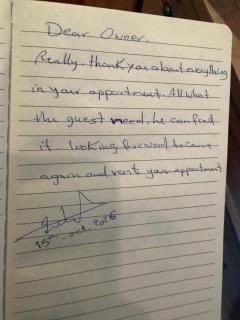 Dear Owner,
Really, thank you about everything
in your appartment. All what
the guest need, he can find
it. looking forward to come
again and rent your appartment
15th. oct. 2025